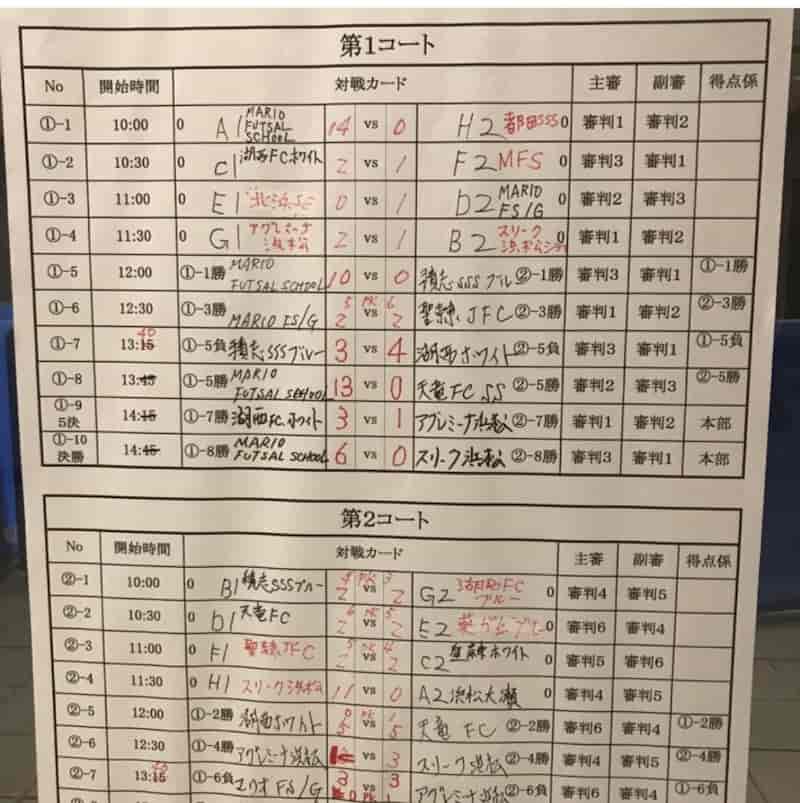 第1コート
No 開始時間 対戦カード 主審 副審 得点係
①-1 10:00 0 A1 MARIO FUTSAL SCHOOL 14 vs 0 H2 都田SSS 0 審判1 審判2
①-2 10:30 C1 湖西FCホワイト 2 vs 1 F2 MFS 0 審判3 審判1
①-3 11:00 E1 北浜SE 0 vs 1 D2 MARIO FS/G 審判2 審判3
①-4 11:30 G1 アグレミーナ浜松 2 vs 1 B2 スリーク浜松 0 審判1 審判2
①-5 12:00 ①-1勝 MARIO FUTSAL SCHOOL 10 vs 0 積志SSSブルー ②-1勝 審判3 審判1 ①-1勝
①-6 12:30 ①-3勝 MARIO FS/G 5 PK 6 2 vs 2 聖隷JFC ②-3勝 審判1 審判2 ②-3勝
①-7 13:15 40 ①-5負 積志SSSブルー 3 vs 4 湖西ホワイト ②-5負 審判3 審判1 ①-5負
①-8 13:45 ①-5勝 MARIO FUTSAL SCHOOL 13 vs 0 天竜FC SS ②-5勝 審判2 審判3 ②-5勝
①-9 5決 14:15 ①-7勝 湖西FCホワイト 3 vs 1 アグレミーナ浜松 ②-7勝 審判1 審判2 本部
①-10 決勝 14:45 ①-8勝 MARIO FUTSAL SCHOOL 6 vs 0 スリーク浜松 ②-8勝 審判3 審判1 本部
第2コート
No 開始時間 対戦カード 主審 副審 得点係
②-1 10:00 0 B1 積志SSSブルー 4 PK 3 2 vs 2 G2 ブルー 0 審判4 審判5
②-2 10:30 0 D1 天竜FC 6 PK 5 2 vs 2 E2 0 審判6 審判4
②-3 11:00 0 F1 聖隷JFC 5 PK 4 2 vs 2 C2 ホワイト 0 審判5 審判6
②-4 11:30 0 H1 スリーク浜松 11 vs 0 A2 浜松大瀬 0 審判4 審判5
②-5 12:00 ①-2勝 湖西ホワイト 0 PK 1 5 vs 5 天竜FC ②-2勝 審判6 審判4 ①-2勝
②-6 12:30 ①-4勝 アグレミーナ浜松 vs 3 スリーク浜松 ②-4勝 審判4 審判5 ②-4勝
②-7 13:15 ①-6負 マリオFS/G 3 vs 3 0 PK 1 アグレミーナ浜松 ②-6負 審判6 審判4 ①-6負